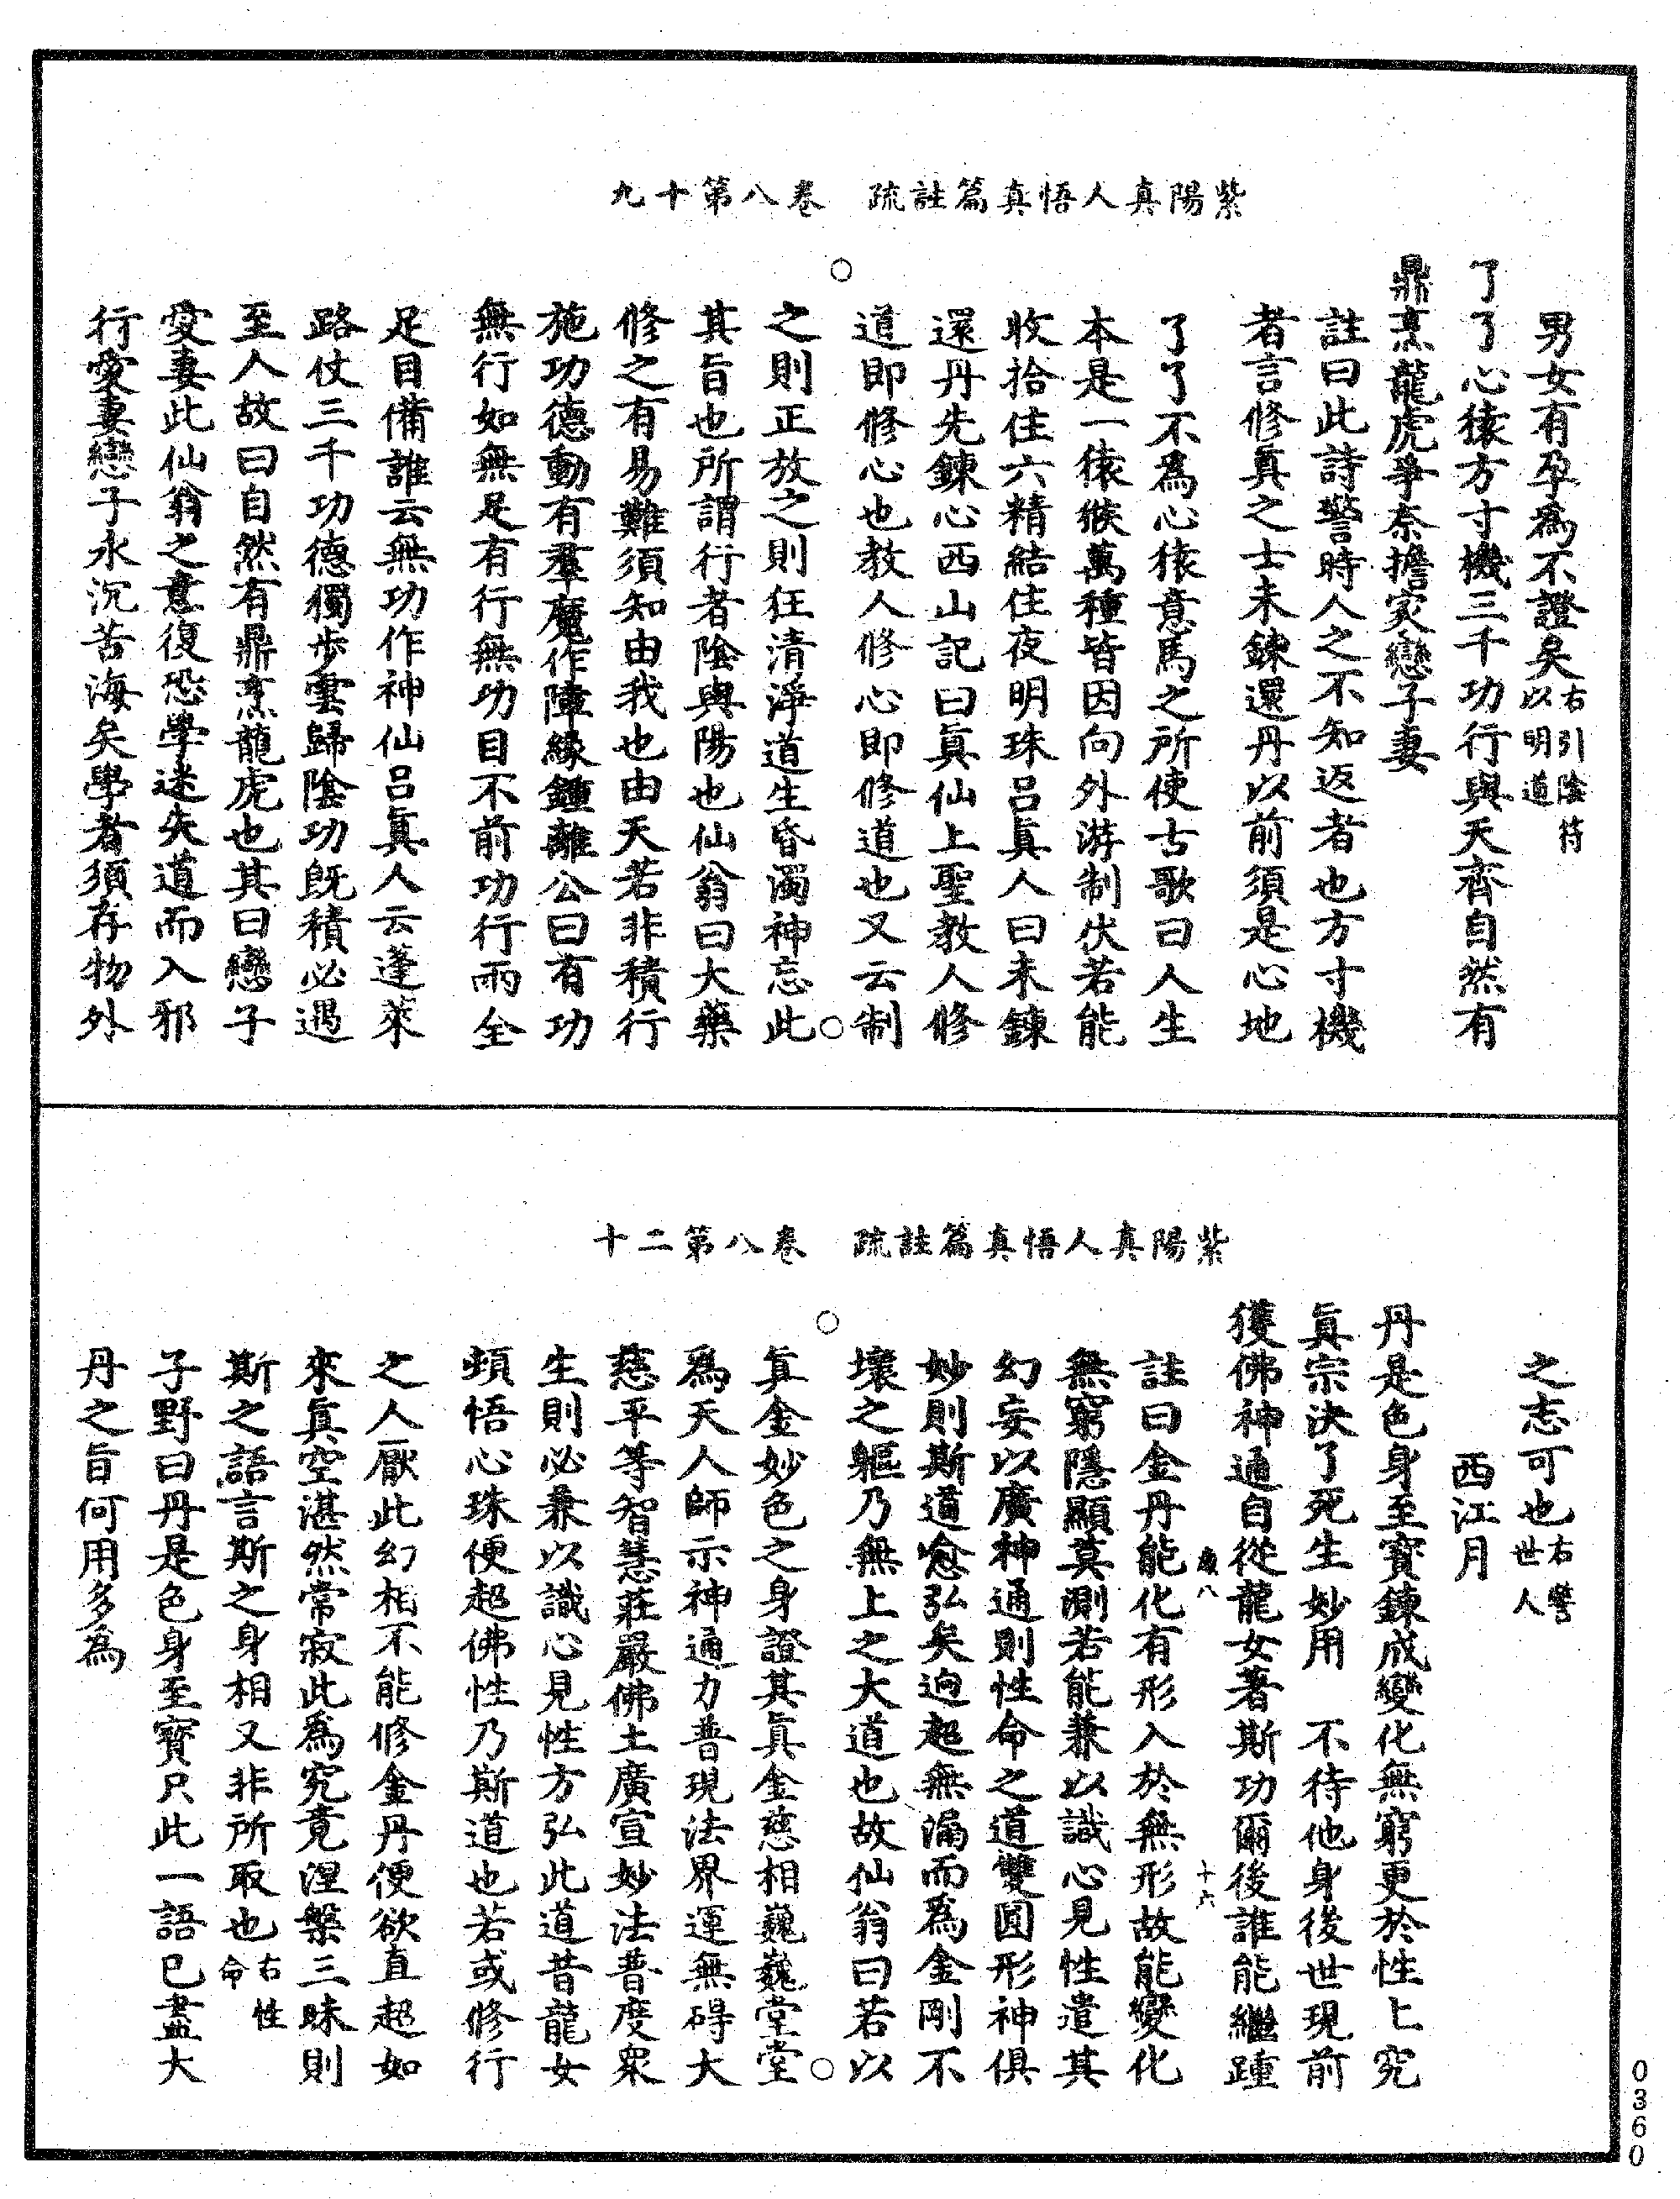 紫陽真人悟真篇註疏　卷八第十九
男女有孕為不證矣右引陰符以明道
了了心猿方寸機三千功行與天齊自然有
鼎烹龍虎爭奈擔家戀子妻
註曰此詩警時人之不知返者也方寸機
者言修眞之士未鍊還丹以前須是心地
了了不為心猿意馬之所使古歌曰人生
本是一猿猴萬種皆因向外游制伏若能
收拾住六精結住夜明珠呂眞人曰未鍊
還丹先鍊心西山記曰眞仙上聖教人修
道即修心也教人修心即修道也又云制
之則正放之則狂清淨道生昏濁神忘此
其旨也所謂行者陰與陽也仙翁曰大藥
修之有易難須知由我也由天若非積行
施功德動有羣魔作障緣鍾離公曰有功
無行如無足有行無功目不前功行兩全
足目備誰云無功作神仙呂眞人云蓬萊
路仗三千功德獨步雲歸陰功旣積必遇
至人故曰自然有鼎烹龍虎也其曰戀子
愛妻此仙翁之意復恐學迷失道而入邪
行愛妻戀子水沉苦海矣學者須存物外
紫陽真人悟真篇註疏　卷八第二十
之志可也右警世人
西江月
丹是色身至寳鍊成變化無窮更於性上究
眞宗決了死生妙用　不待他身後世現前
獲佛神通自從龍女著斯功爾後誰能繼踵
八　十六
註曰金丹能化有形入於無形故能變化
無窮隱顯莫測若能兼以識心見性遣其
幻妄以廣神通則性命之道雙圓形神俱
妙則斯道愈弘矣逈超無漏而爲金剛不
壞之軀乃無上之大道也故仙翁曰若以
眞金妙色之身證其眞金慈相巍巍堂堂
爲天人師示神通力普現法界運無碍大
慈平等智慧莊嚴佛土廣宣妙法普度衆
生則必兼以識心見性方弘此道昔龍女
頓悟心珠便超佛性乃斯道也若或修行
之人厭此幻相不能修金丹便欲直超如
來眞空湛然常寂此爲究竟涅槃三昧則
斯之語言斯之身相又非所取也右性命
子野曰丹是色身至寳只此一語已盡大
丹之旨何用多為
0360